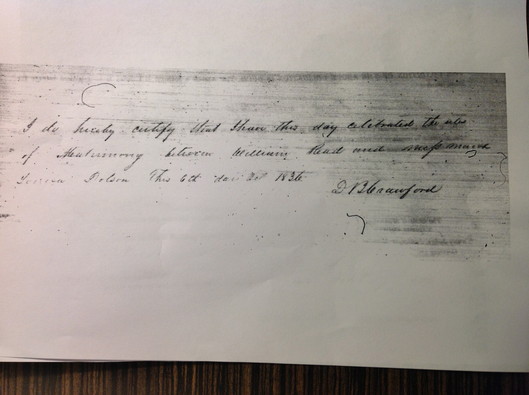 I do hereby certify that I have this day celebrated the rites
of Matrimony between William Head and
Dotson This 6th day 1836
D B Crawford